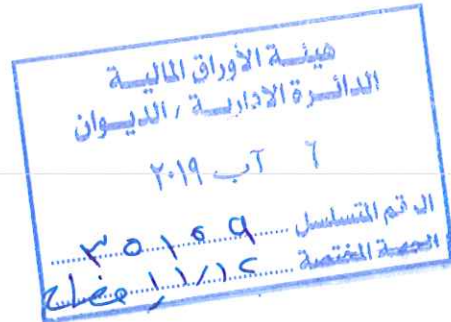 هيئة الأوراق المالية
الدائرة الادارية / الديوان
٦ آب ٢٠١٩
الرقم المتسلسل ٣٥١٥٩
الجهة المختصة